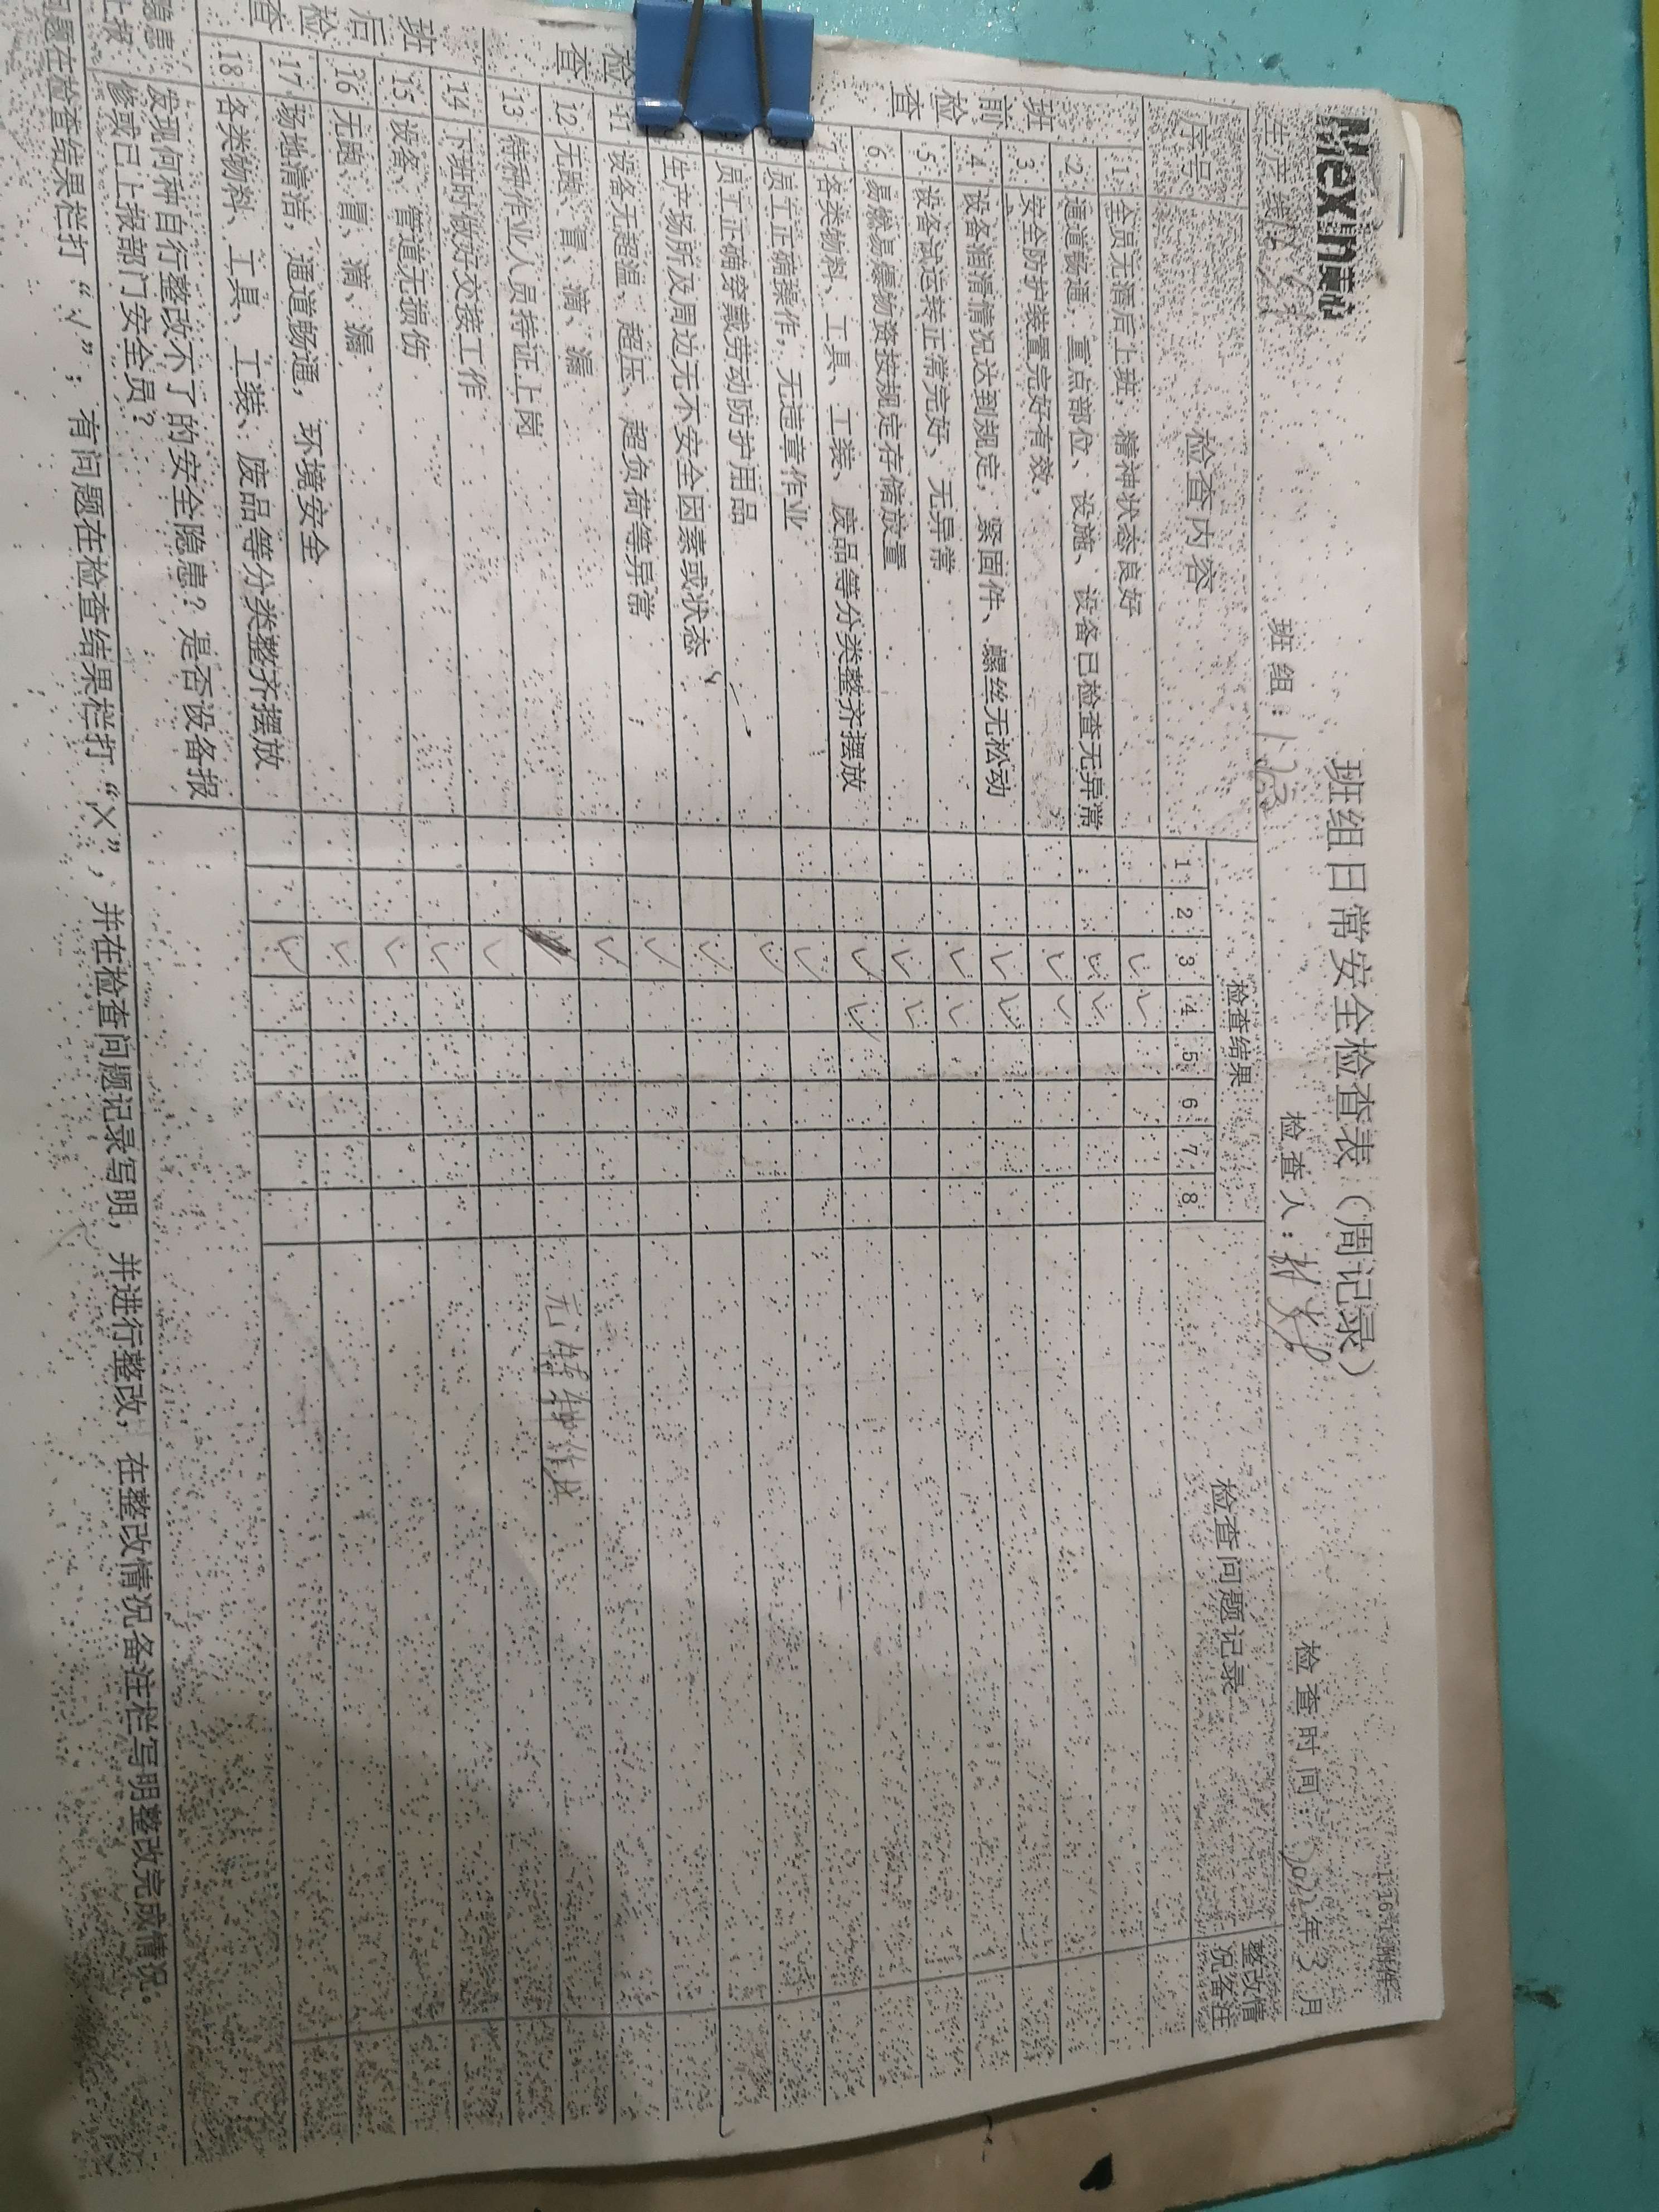 Mexin美心
班组日常安全检查表（周记录）
生产线：
班 组：
检 查 人：
检 查 时 间： 年 3 月
序号 检查内容 检查结果 检查问题记录 整改情况备注
1 2 3 4 5 6 7 8
班前检查
1 全员无酒后上班，精神状态良好 √ √
2 通道畅通，重点部位、设施、设备已检查无异常 √ √
3 安全防护装置完好有效， √ √
4 设备润滑情况达到规定，紧固件、螺丝无松动 √ √
5 设备试运转正常完好、无异常 √ √
6 易燃易爆物资按规定存储放量 √ √
7 各类物料、工具、工装、废品等分类整齐摆放 √ √
检查
员工正确操作，无违章作业 √
员工正确穿戴劳动防护用品 √
生产场所及周边无不安全因素或状态 √
11 设备无超温、超压、超负荷等异常 √
12 无跑、冒、滴、漏 √
13 特种作业人员持证上岗 无特种作业
班后检查
14 下班时做好交接工作 √
15 设备、管道无损伤 √
16 无跑、冒、滴、漏 √
17 场地清洁，通道畅通，环境安全 √
18 各类物料、工具、工装、废品等分类整齐摆放 √
隐患上报
发现何种自行整改不了的安全隐患？是否设备报
修或已上报部门安全员？
问题在检查结果栏打“√”；有问题在检查结果栏打“×”，并在检查问题记录写明，并进行整改，在整改情况备注栏写明整改完成情况。